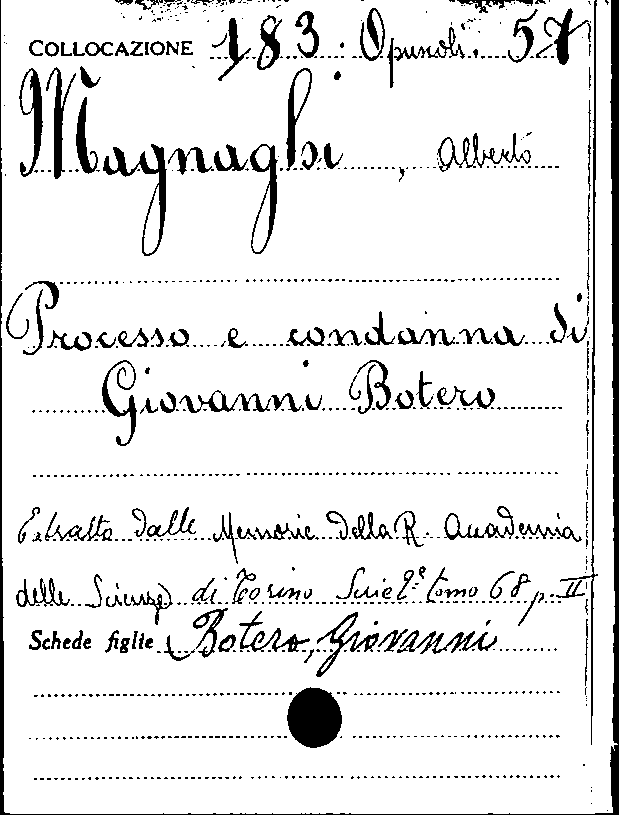 COLLOCAZIONE 183. Opuscoli. 57
Magnaghi, Alberto
Processo e condanna di
Giovanni Botero
Estratto dalle Memorie della R. Accademia
delle Scienze di Torino Serie 2ª tomo 68 p. II
Schede figlie Botero, Giovanni